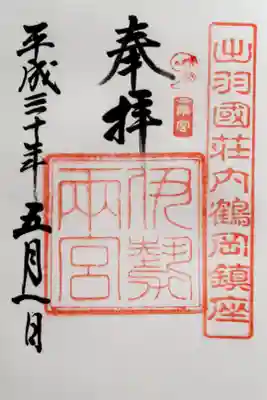 出羽國荘内鶴岡鎮座
奉拝
伊勢
両宮
平成三十年五月一日